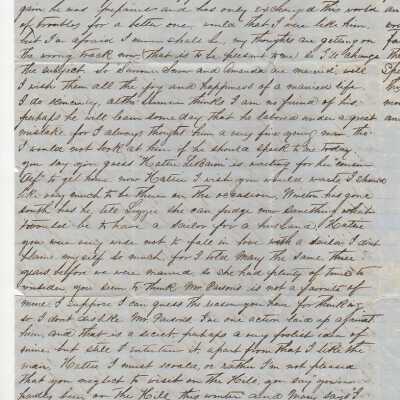 gain he was prepared and has only exchanged this world
of troubles for a better one, would that I were like him,
but I'm afraid I never shall be, my thoughts are getting on
the wrong track now that is to be present so I'll change
the subject. So Simmie Snow and Amanda are married, well
I wish them all the joy and happiness of a married life
I do sincerely, altho thinks I am no friend of his
perhaps he will learn some day that he labored under a great
mistake for I always thought him a very fine young man tho
I would not look at him if he should speak to me today.
you say you guess Hattie is waiting for his
to get home now Hattie I wish you would wait I should
like very much to be there on the occasion, has gone
south has he, tell Lizzie she can judge now something what
would be to have a sailor for a husband, Hattie
you were very wise not to fall in love with a sailor I don't
blame my self so much, for I told Mary the same three
years before we were married so she had plenty of time to
consider, you seem to think Mr Parsons is not a favorite of
mine I suppose I can guess the reason you have for thinking
so I don't dislike Mr Parsons I've one action laid up against
him and that is a secret, perhaps a very foolish idea of
mine but still I entertain it, apart from that I like the
man, Hattie I must scold, or rather I'm not pleased
that you neglect to visit on the Hill, you say you've
been on the Hill this winter and Mary says I